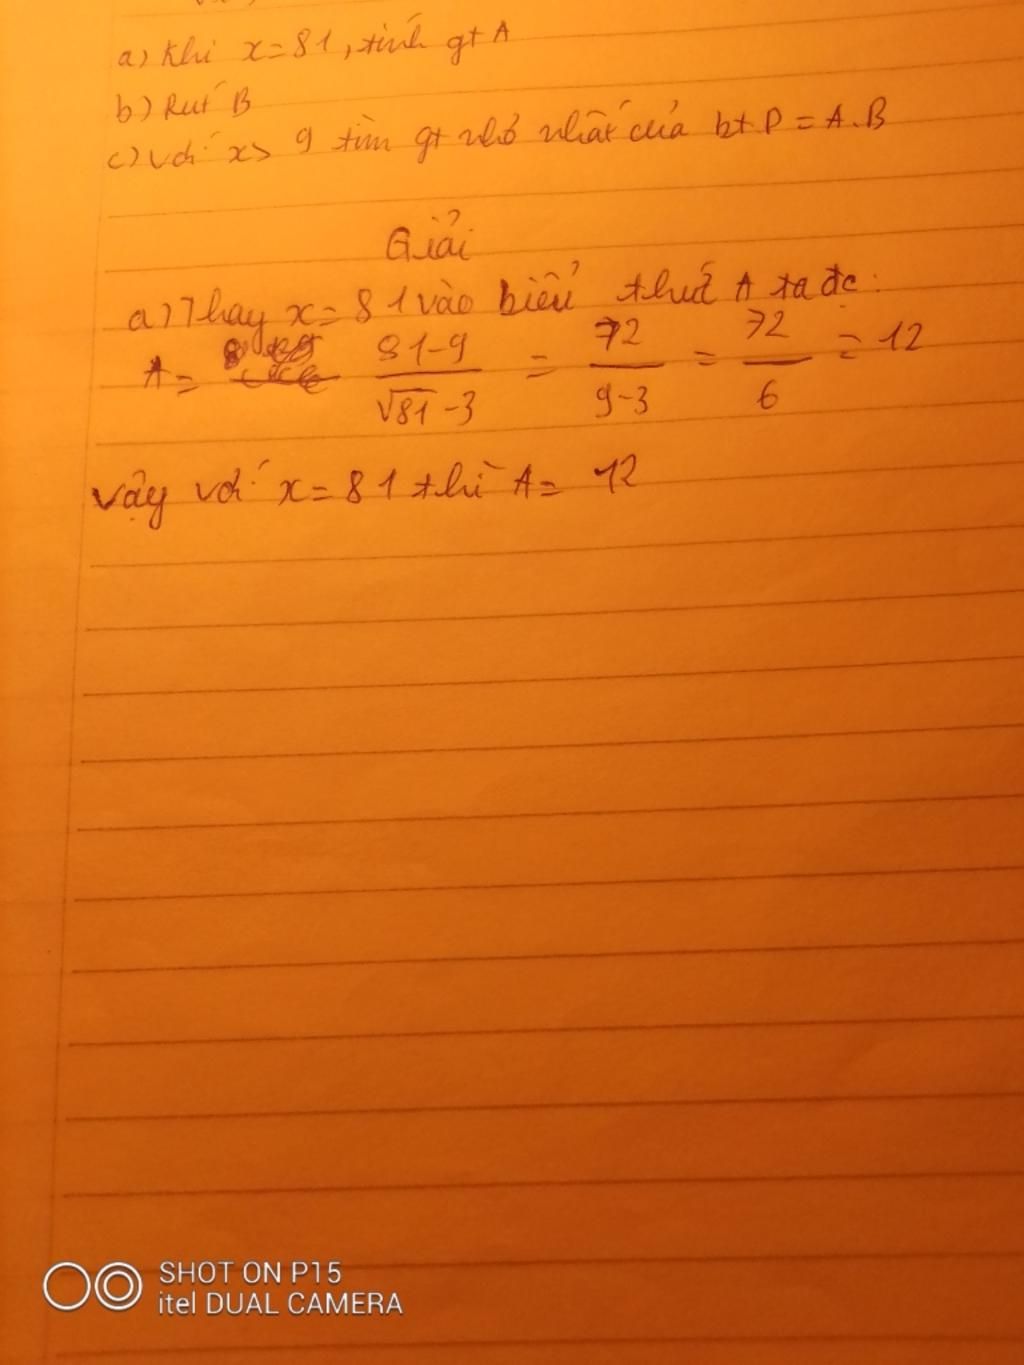 a) Khi x=81, tính gt A
b) Rút B
c) Với x> 9 tìm gt nhỏ nhất của bt P = A.B
Giải
a) Thay x = 81 vào biểu thức A ta đc:
A = 81-9 / √81 -3 = 72 / 9-3 = 72 / 6 = 12
vậy với x = 81 thì A = 12
SHOT ON P15
itel DUAL CAMERA